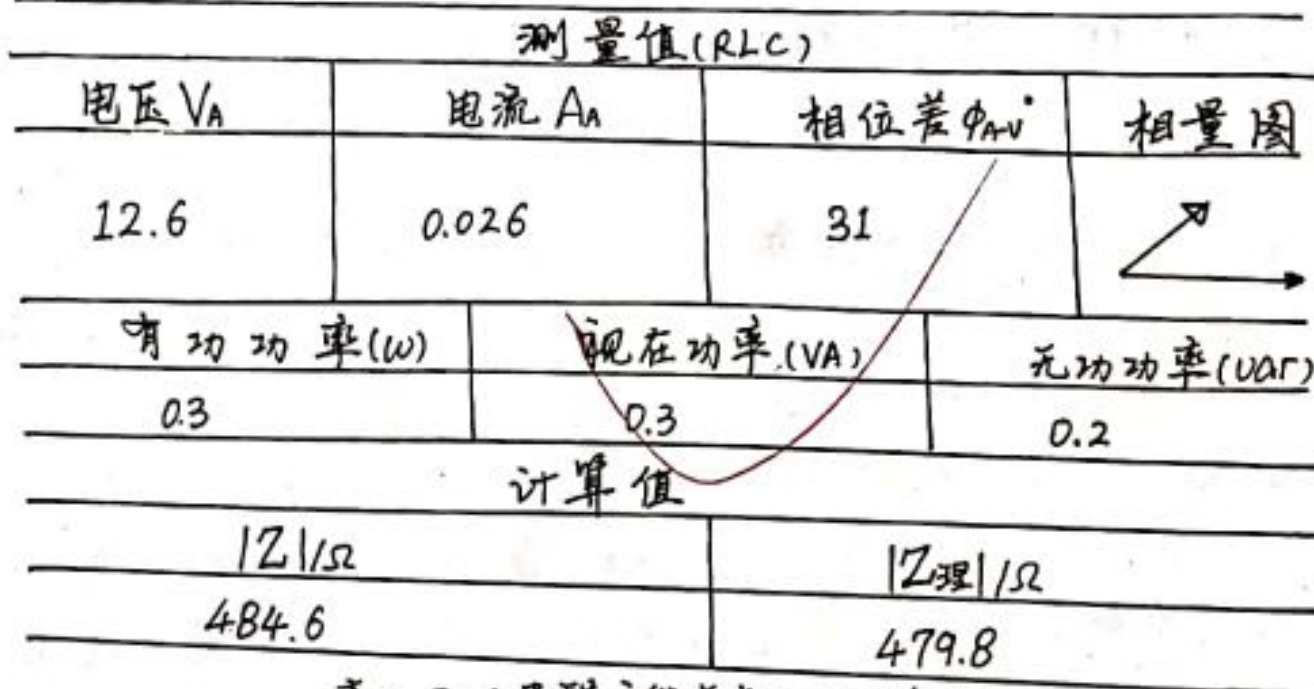 测量值(RLC)
电压 VA 电流 AA 相位差 ΦA-V° 相量图
12.6 0.026 31
有功功率(W) 视在功率.(VA) 无功功率(var)
0.3 0.3 0.2
计算值
|Z|/Ω |Z理|/Ω
484.6 479.8